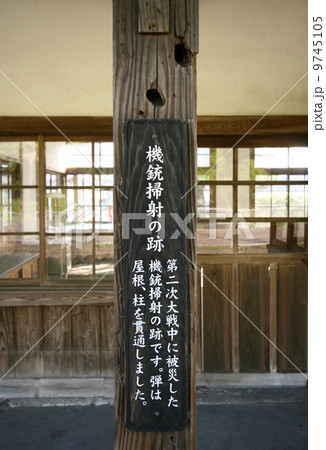 機銃掃射の跡
第二次大戦中に被災した
機銃掃射の跡です。弾は
屋根、柱を貫通しました。
PIXTA
pixta.jp - 9745105